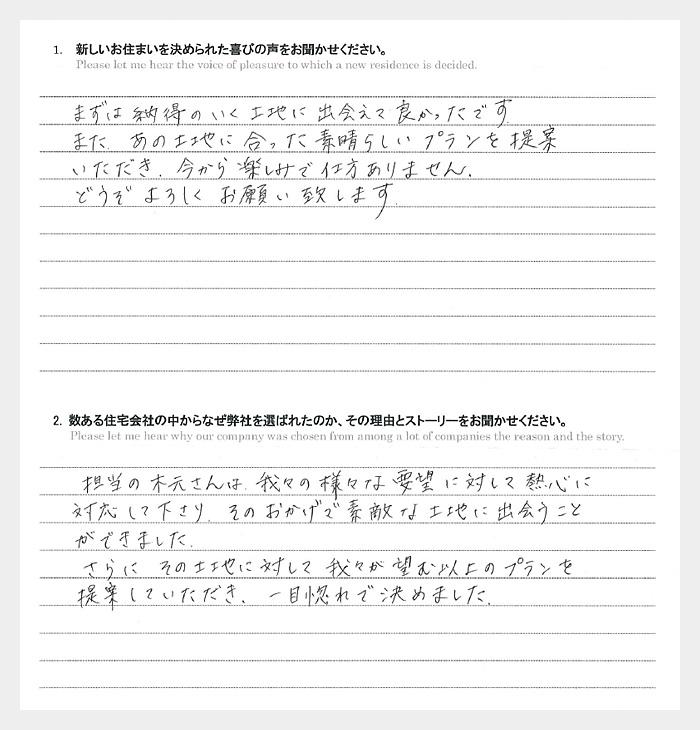 1. 新しいお住まいを決められた喜びの声をお聞かせください。
Please let me hear the voice of pleasure to which a new residence is decided.
まずは納得のいく土地に出会えて良かったです。
また、あの土地に合った素晴らしいプランを提案
いただき、今から楽しみで仕方ありません。
どうぞよろしくお願い致します。
2. 数ある住宅会社の中からなぜ弊社を選ばれたのか、その理由とストーリーをお聞かせください。
Please let me hear why our company was chosen from among a lot of companies the reason and the story.
担当の木元さんは、我々の様々な要望に対して熱心に
対応して下さり、そのおかげで素敵な土地に出会うこと
ができました。
さらに その土地に対して我々が望む以上のプランを
提案していただき、一目惚れで決めました。